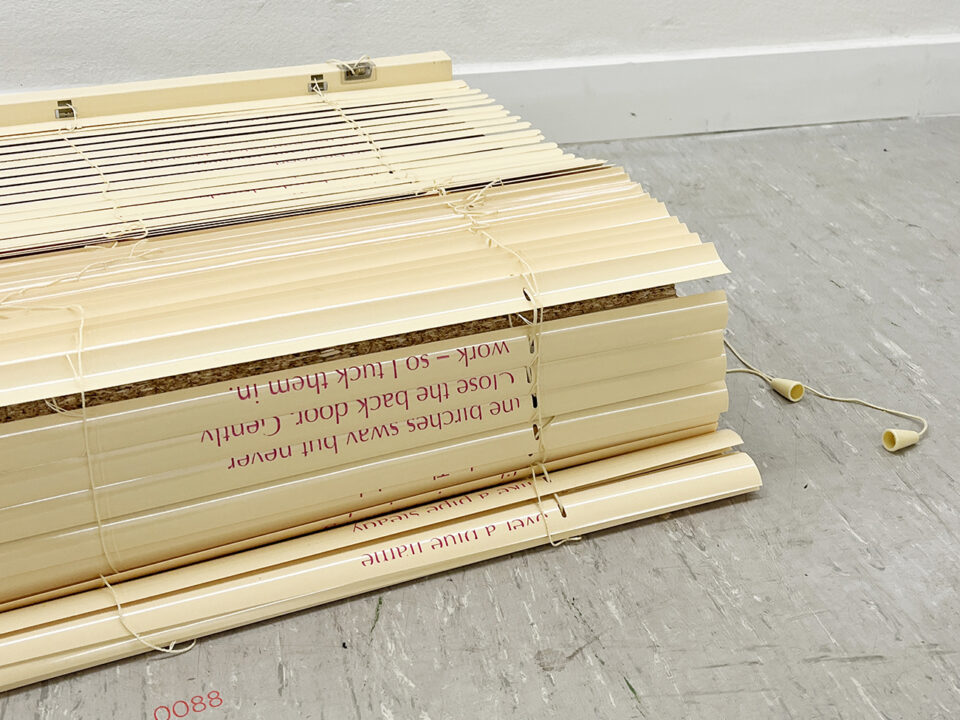 over a blue flame
like a pipe steady
the birches sway but never
Close the back door. Gently
work – so I tuck them in.
0088